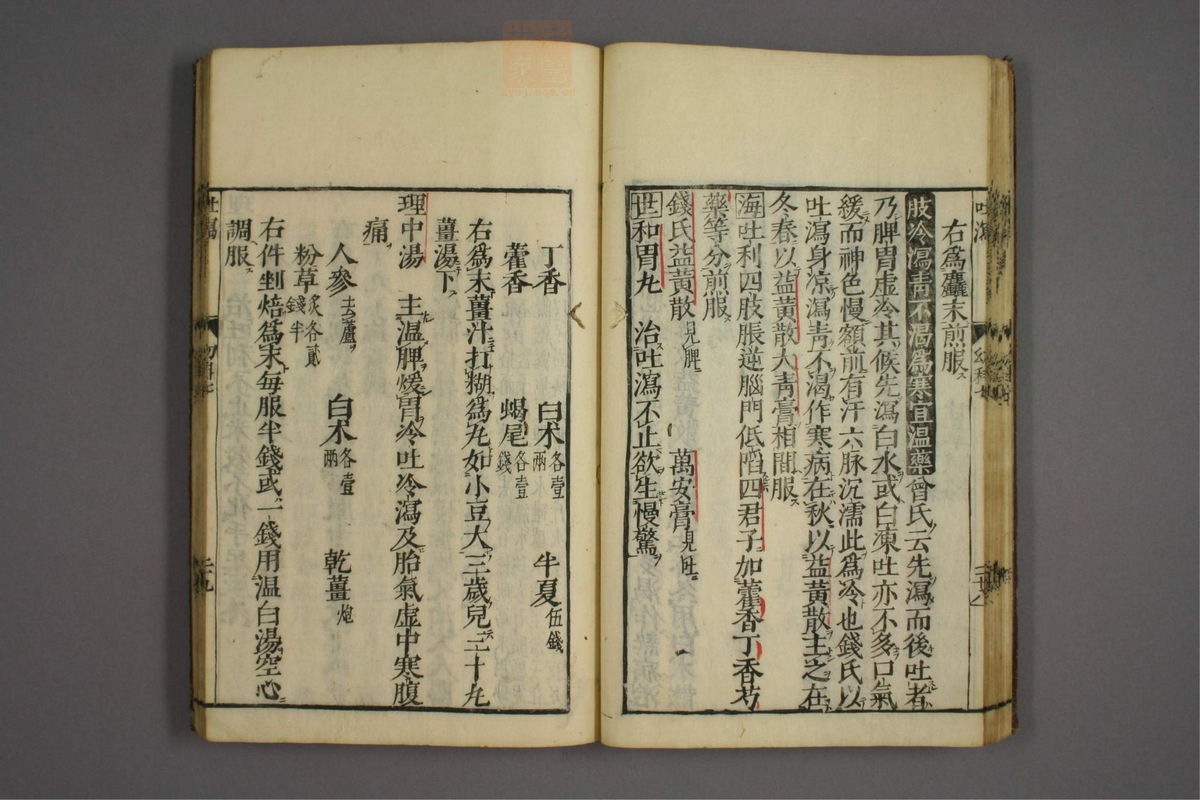 右爲麤末煎服
肢冷瀉靑不渴爲寒且温藥曾氏云先瀉而後吐者
乃脾胃虚冷其候先瀉白水或白凍吐亦不多口氣
緩而神色慢額前有汗六脉沉濡此爲冷也錢氏以
吐瀉身凉瀉靑不渴作寒病在秋以益黄散主之在
冬春以益黄散大靑膏相間服
海吐利四肢脹逆腦門低陷四君子加藿香丁香芍
藥等分煎服
錢氏益黄散見脾 萬安膏見吐
世和胃丸 治吐瀉不止欲生慢驚
丁香 白术各壹兩 半夏伍錢
藿香 蝎尾各壹錢
右爲末薑汁打糊爲丸如小豆大三歲兒三十丸
薑湯下
理中湯 主温脾煖胃冷吐冷瀉及胎氣虚中寒腹
痛
人參去蘆 白术各壹兩 乾薑炮
粉草炙各貳錢半
右件剉焙爲末每服半錢或一錢用温白湯空心
調服